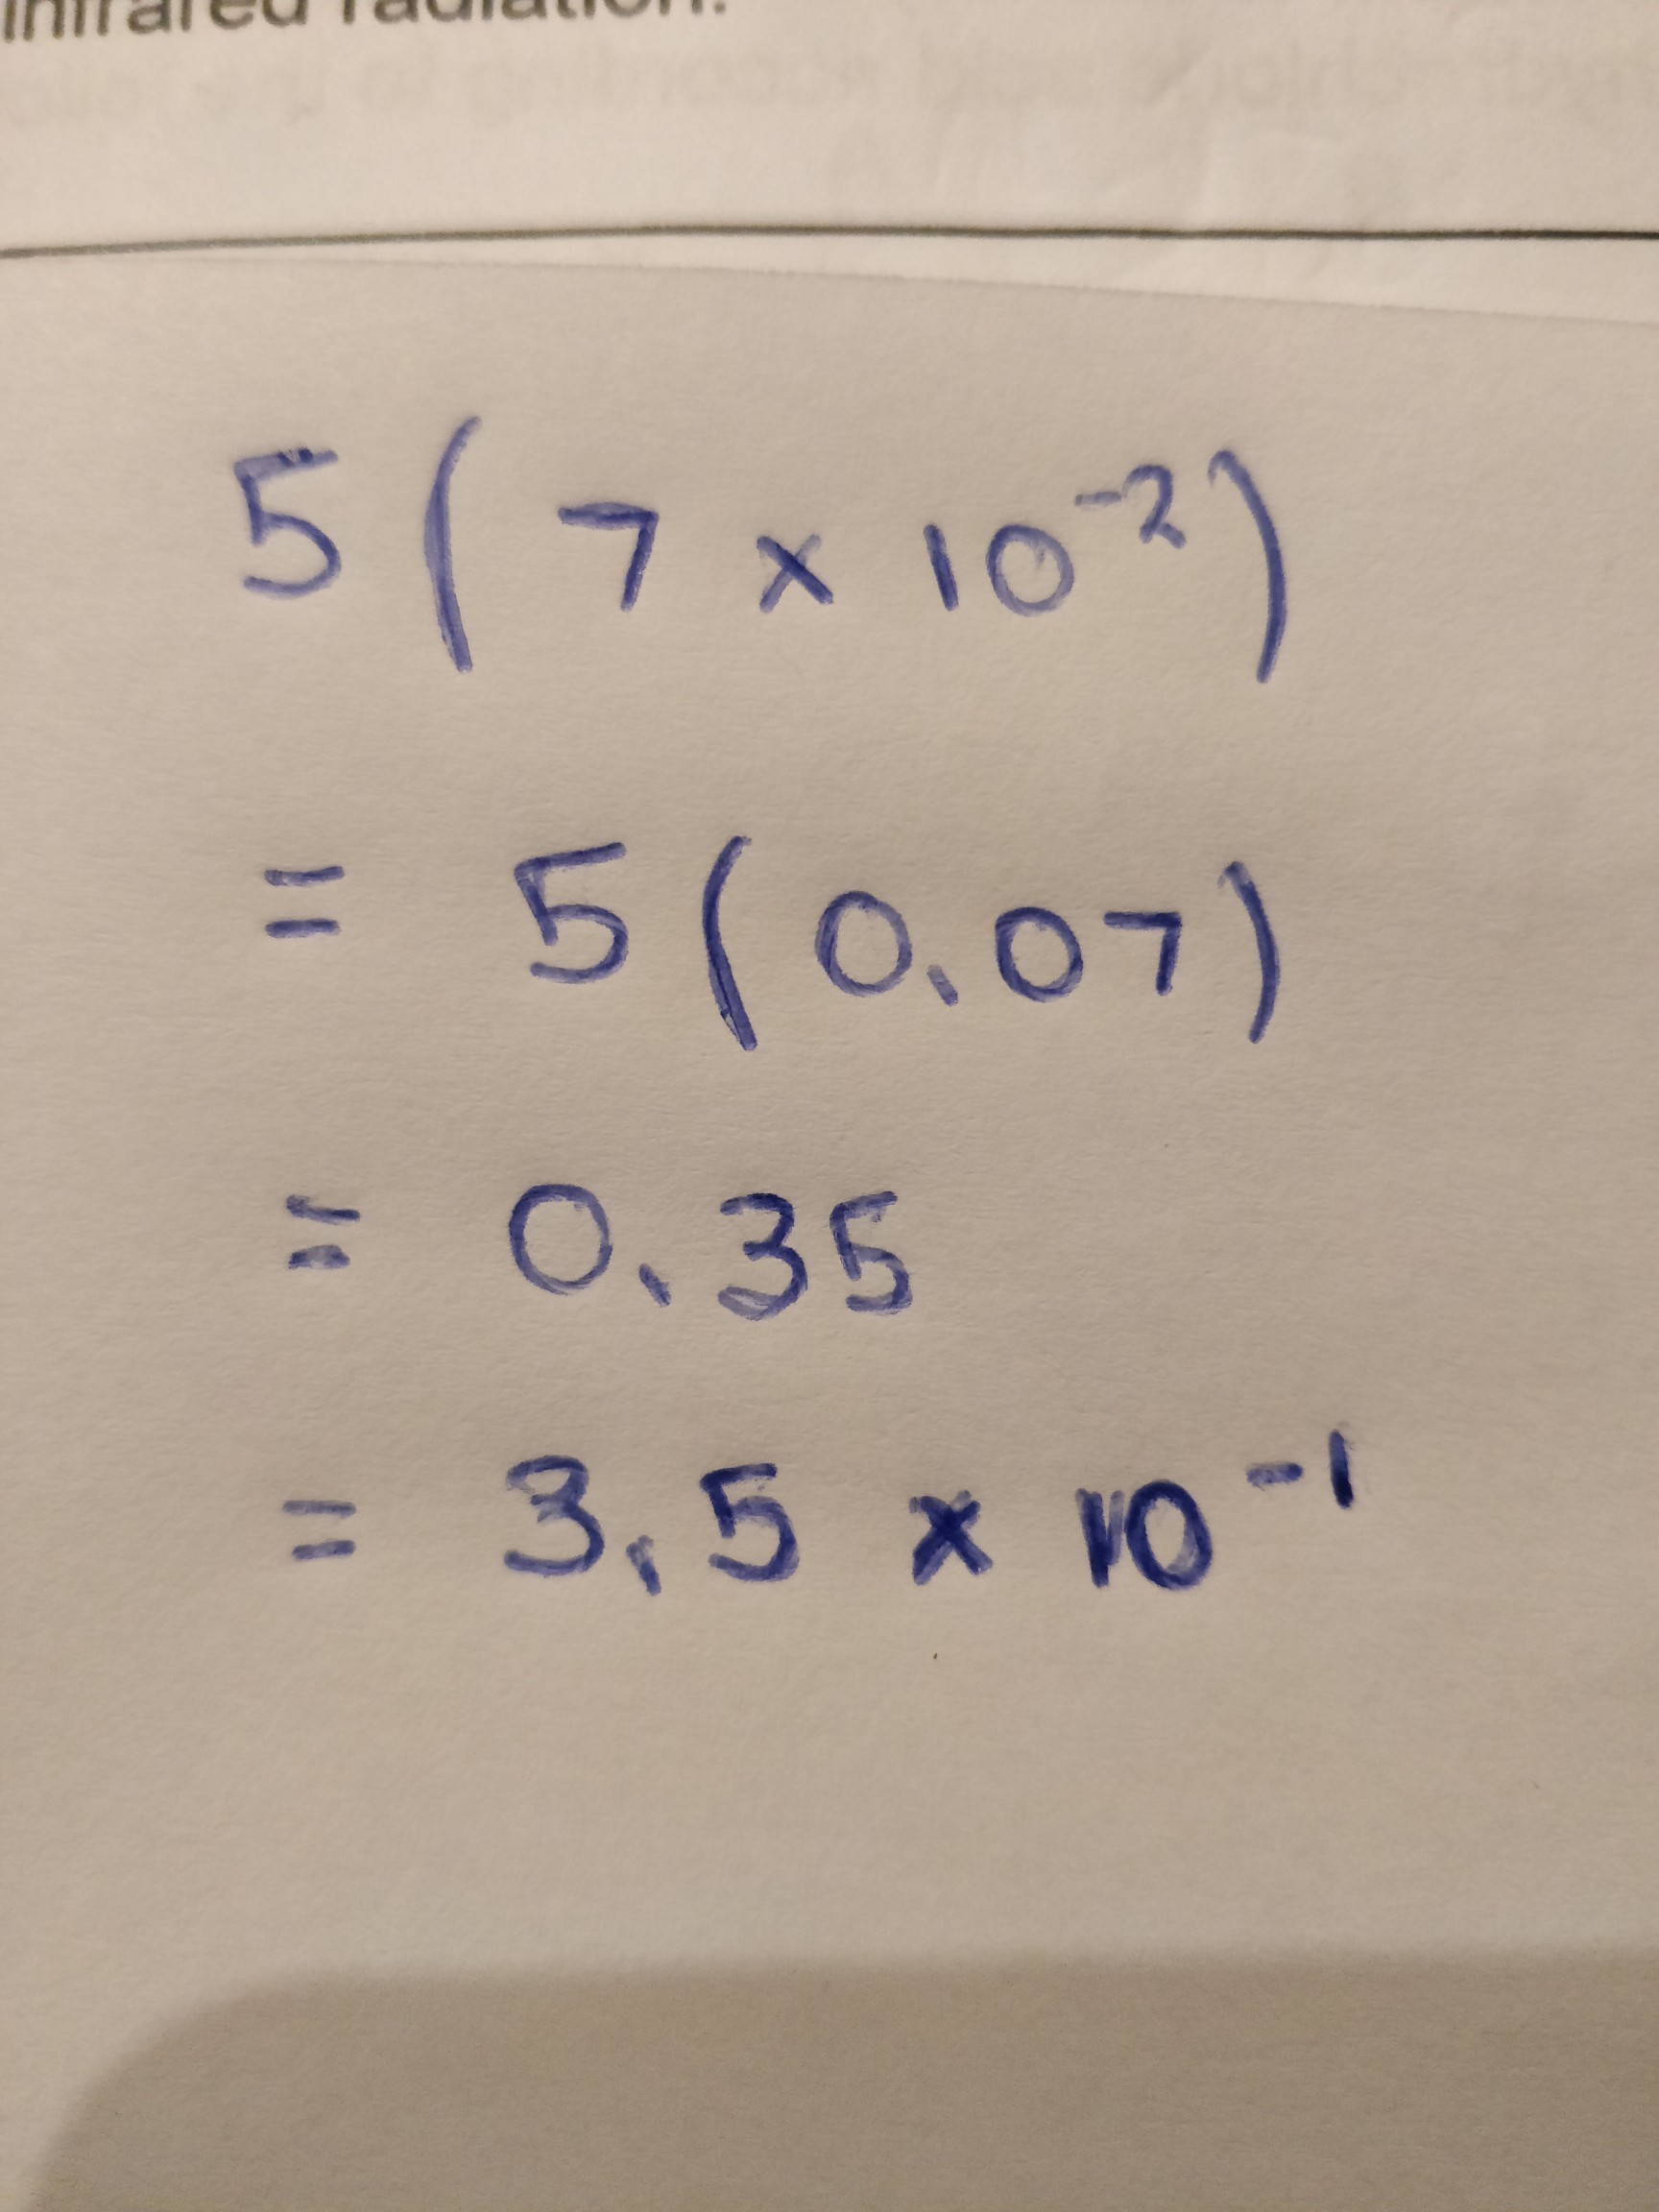 infrared radiation.
5 ( 7 × 10⁻² )
= 5 ( 0.07 )
= 0.35
= 3.5 × 10⁻¹